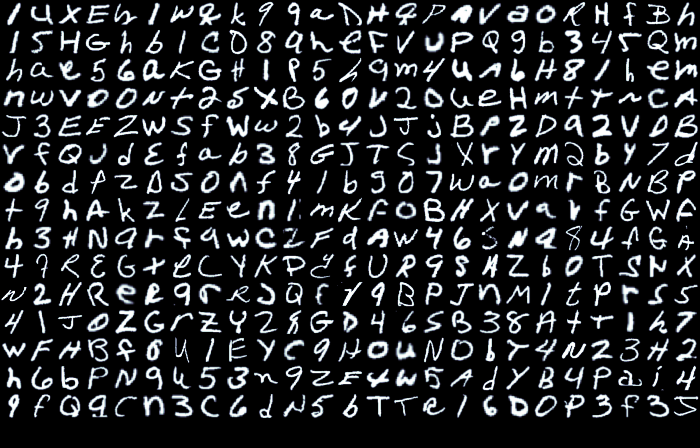 1UXEh1W8k99aDHGPAVaORHfBh
15HGhb1C089heFVUPQ9b345Qm
hae56aKGH1P5h9m4UAbH81hem
nwvOONt25XB60V20UeHmtrnCA
J3EEZWSfWw2b4JJjBPZDa2VDE
rfQJdEfab38GJTSjXrYm2bY7d
0bdPZDSOnf41b907WaOmrBNBP
t9hAkZLEen1mKFOBHXVarfGWF
h3HN9rfqwCZFdAW46SNq84fGA
47REGtECYKPYfUR9SAZ60TSNX
N2HReR9rRJQFY9BPJnM1tPrS5
41JOZGrZY28GD46SB38Att1h7
wFHBf8U1EYC9HOUNObY4N23H2
h6bPN9U53n9ZEtW5AdYB4Pai4
9fQ9Cn3C6dN5bTTR16DOP3f35